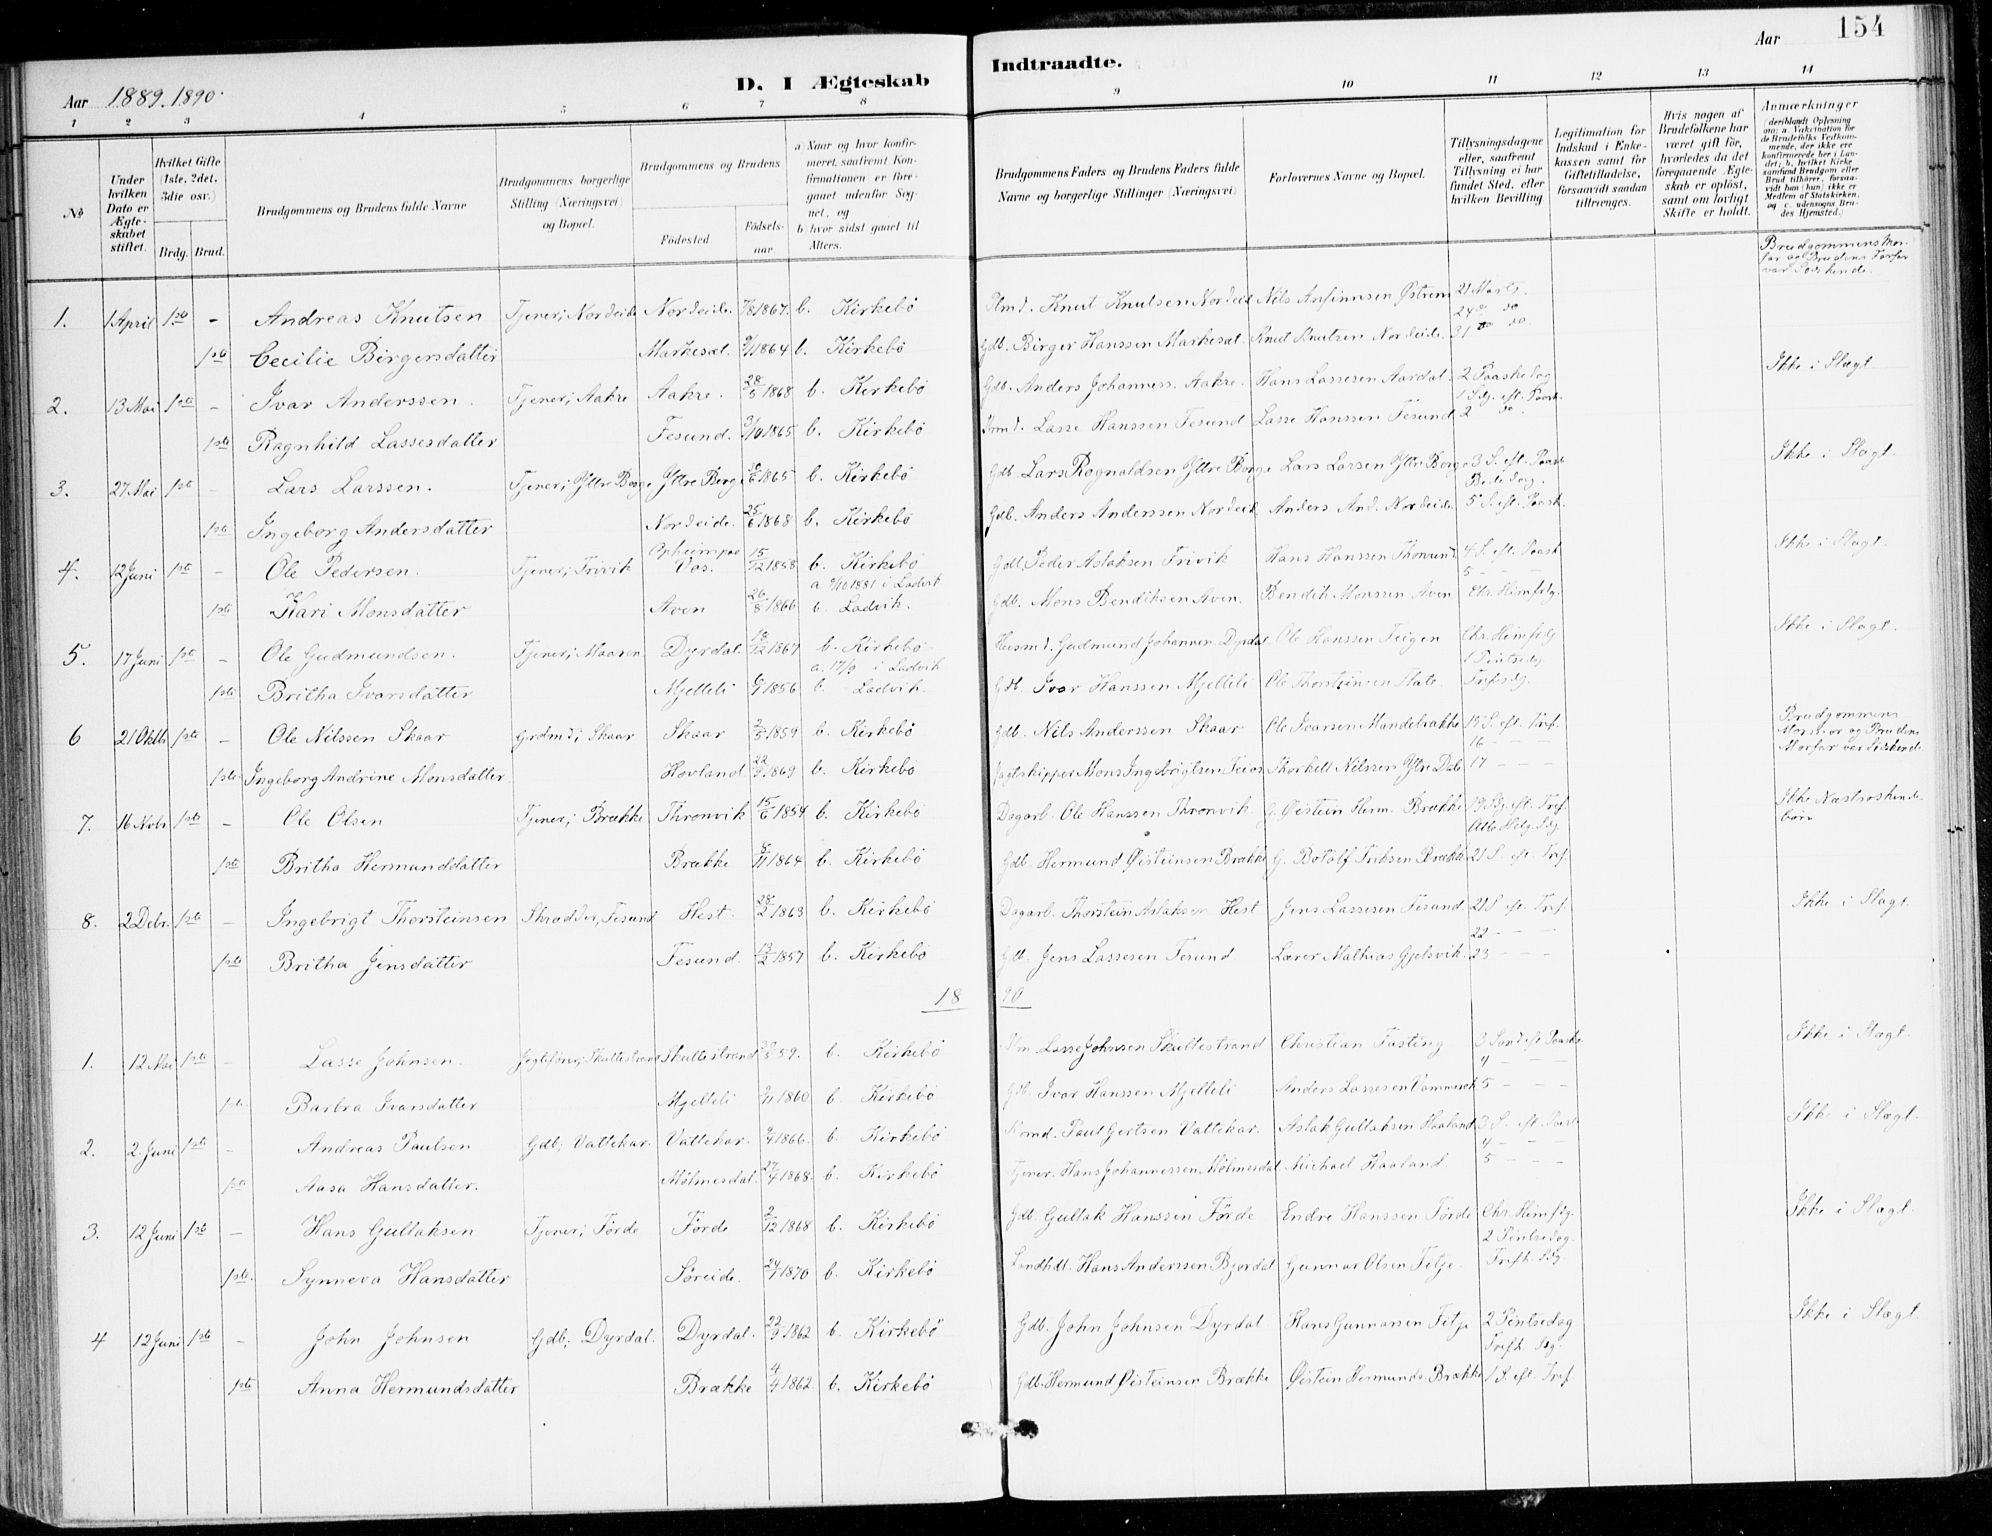 154
Aar 1889. 1890.
D. I Ægteskab Indtraadte.
Aar
1 2 3 4 5 6 7 8 9 10 11 12 13 14
No
Under hvilken Dato er Ægteskabet stiftet.
Hvilket Gifte (1ste, 2det, 3die osv.)
Brdg. Brud.
Brudgommens og Brudens fulde Navne
Brudgommens borgerlige Stilling (Næringsvei) og Bopæl.
Brudgommens og Brudens
Fødested. Fødselsaar.
a Naar og hvor konfirmeret, saafremt Konfirmationen er foregaaet udenfor Sognet, og
b) hvor sidst gaaet til Alters.
Brudgommens Faders og Brudens Faders fulde Navne og borgerlige Stillinger (Næringsvei)
Forlovernes Navne og Bopæl.
Tillysningsdagene eller, saafremt Tillysning ei har fundet Sted, efter hvilken Bevilling
Legitimation for Indskud i Enkekassen samt for Giftetilladelse, forsaavidt saadan tiltrænges.
Hvis nogen af Brudefolkene har været gift før, hvorledes da det foregaaende Ægteskab er opløst, samt om lovligt Skifte er holdt.
Anmærkninger (deriblandt Oplysning om: a. Vaksination for de Brudefolks Vedkommende, der ikke ere konfirmerede her i Landet; b. hvilket Kirkesamfund Brudgom eller Brud tilhører, forsaavidt han (hun) ikke er Medlem af Statskirken, og c. udensogns Brudes Hjemsted.
1. 1 April 1ste - Andreas Knutsen Tjener; Nordeide Nordeide. 7/8 1867. b. Kirkebö Knut Knutsen Nordeide Nils Anfinnsen Østrem 21 Marts. Brudgommens Morfar og Brudens Farfar var Søskende.
1ste Cecilie Birgersdatter Markesæt 9/1 1864 b. Kirkebö Gdb. Birger Hanssen Markesæt. Knut Knutsen Nordeide. 24 do 31 do
2. 13 Mai 1ste - Ivar Anderssen. Tjener; Aakre Aakre. 28/5 1868 b. Kirkebö Gdb. Anders Johanness. Aakre. Hans Lassesen Aardal. 2 Paaskedag Ikke i Slægt.
1ste Ragnhild Lassesdatter Fesund. 3/10 1865 b. Kirkebö Lasse Hanssen Fesund Lasse Hanssen Fesund 1 Sdg. eft. Paask. 2 do.
3. 27 Mai 1ste - Lars Larssen. Tjener; Yttre Borge Yttre Berge 1865 b. Kirkebö Gdb Lars Ragnaldsen Yttre Borge Lars Larsen Yttre Borge 3 S. eft. Paask Ikke i Slægt.
1ste Ingeborg Andersdatter Nordeide. 25/6 1868 b. Kirkebö Gdb. Anders Anderssen Nordeide Anders And. Nordeide. Bededag. 5 S. eft. Paask.
4. 12 Juni 1ste - Ole Pedersen. Tjener; Frivik Vos. 15/12 1858 b. Kirkebö Gdb. Peder Aslaksen Frivik Hans Hanssen 4 S. eft. Paask Ikke i Slægt.
1ste Kari Monsdatter Aven 26/8 1866 a. 9/10 1881 i Ladvik b. Ladvik. Gdb. Mons Bendiksen Aven. Bendik Monssen Aven 5 - - - Chr. Himfdg.
5. 17 Juni 1ste - Ole Gudmundsen. Tjener; Maaren Dyrdal. 18/12 1867 b. Kirkebö Husmd. Gudmund Johannen. Dyrdal Ole Hanssen Teigen Chr. Himfdg Ikke i Slagt.
1ste Britha Ivarsdatter Mjelleli 6/1 1856 a. 17/9 i Ladvik b. Ladvik. Gdb. Ivar Hanssen Mjelleli Ole Thorsteinsen Flate. 1 Pintsedg. Trefsdg.
6 21 Oktbr 1ste - Ole Nilssen Skaar Grdmd; Skaar Skaar 2/5 1859 b. Kirkebö Gdb. Nils Anderssen Skaar Ole Ivarsen Mandelbakke 15 S. eft. Tref. Brudgommens Mormor og Brudens Morfar var Sødskende.
1ste Ingeborg Andrine Monsdatter Hovland 22/9 1869 b. Kirkebö Jagtskipper Mons Ingebrigtsen Feios Thorkell Nilssen Ytre Dale 16 - - - 17 - - -
7. 16 Novbr 1ste - Ole Olsen Tjener; Brække Thronvik 15/6 1854 b. Kirkebö Dagarb. Ole Hanssen Thronvik G. Øistein Herm. Brække 19 Sdg. eft. Tref. Ikke Næstsøskendebörn
1ste Britha Hermunddatter Brække 8/11 1864 b. Kirkebö Gdb. Hermund Øisteinsen Brække G. Botolf Eriksen Brække Alle Helg. Sdg. 21 S. eft. Tref.
8. 2 Debr. 1ste - Ingebrigt Thorsteinsen Skrædder, Fesund Hest. 28/2 1863 b. Kirkebö Dagarb. Thorstein Aslaksen Hest Jens Lassesen Fesund 21 S. eft. Tref. Ikke i Slagt.
1ste Britha Jensdatter Fesund. 13/2 1857 b. Kirkebö Gdb. Jens Lassesen Fesund Lærer Mathias Gjelsvik. 22 - - - 23 - - -
18 90
1. 12 Mai 1ste - Lasse Johnsen. Jagtefører; Skultestrand Skultestrand 59. b. Kirkebö Lasse Johnsen Skultestrand Christian Fasting 3 Sond. eft. Paaske Ikke i Slagt.
1ste Barbra Ivarsdatter Mjelleli 1860 b. Kirkebö Gdb. Ivar Hanssen Mjelleli Anders Lassesen 4 - - - 5 - - -
2. 2 Juni 1ste - Andreas Paulsen Gdb; Vattekar. Vattekar. 1866. b. Kirkebö Paul Gertsen Vattekar. Aslak Gullaksen Haaland 3 S. eft. Paask Ikke i Slagt.
1ste Aasa Hansdatter. Mølmesdal 1868. b. Kirkebö Tjener. Hans Johannessen Mølmesdal Michael Haaland. 4 - - 5 - - -
3. 12 Juni 1ste - Hans Gullaksen Tjener; Førde Førde 2/12 1868 b. Kirkebö Gdb. Gullak Hanssen Førde Endre Hanssen Førde Chr. Himfdg. Ikke i Slagt.
1ste. Synneva Hansdatter Söreide. 24/1 1870 b. Kirkebö Landhdl. Hans Anderssen Bjordal Gunnar Olsen Fitje. 2 Pintsedag. Trefh. Sdg.
4 12 Juni 1ste - John Johnsen Gdb; Dyrdal. Dyrdal. 22/9 1862 b. Kirkebö Gdb. John Johnsen Dyrdal Hans Gunnarsen Fitje 2 Pintsedag Ikke i Slagt.
1ste Anna Hermundsdatter Brække 4/4 1862. b. Kirkebö Gdb. Hermund Øisteinsen Brække Øistein Hermunds. Brække Trefh. Sdg. 1 S. eft. Tref.